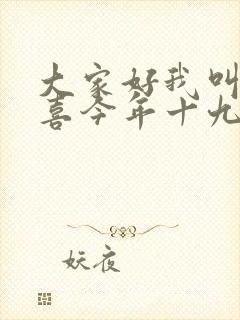 大家好我叫
喜今年十九
妖夜